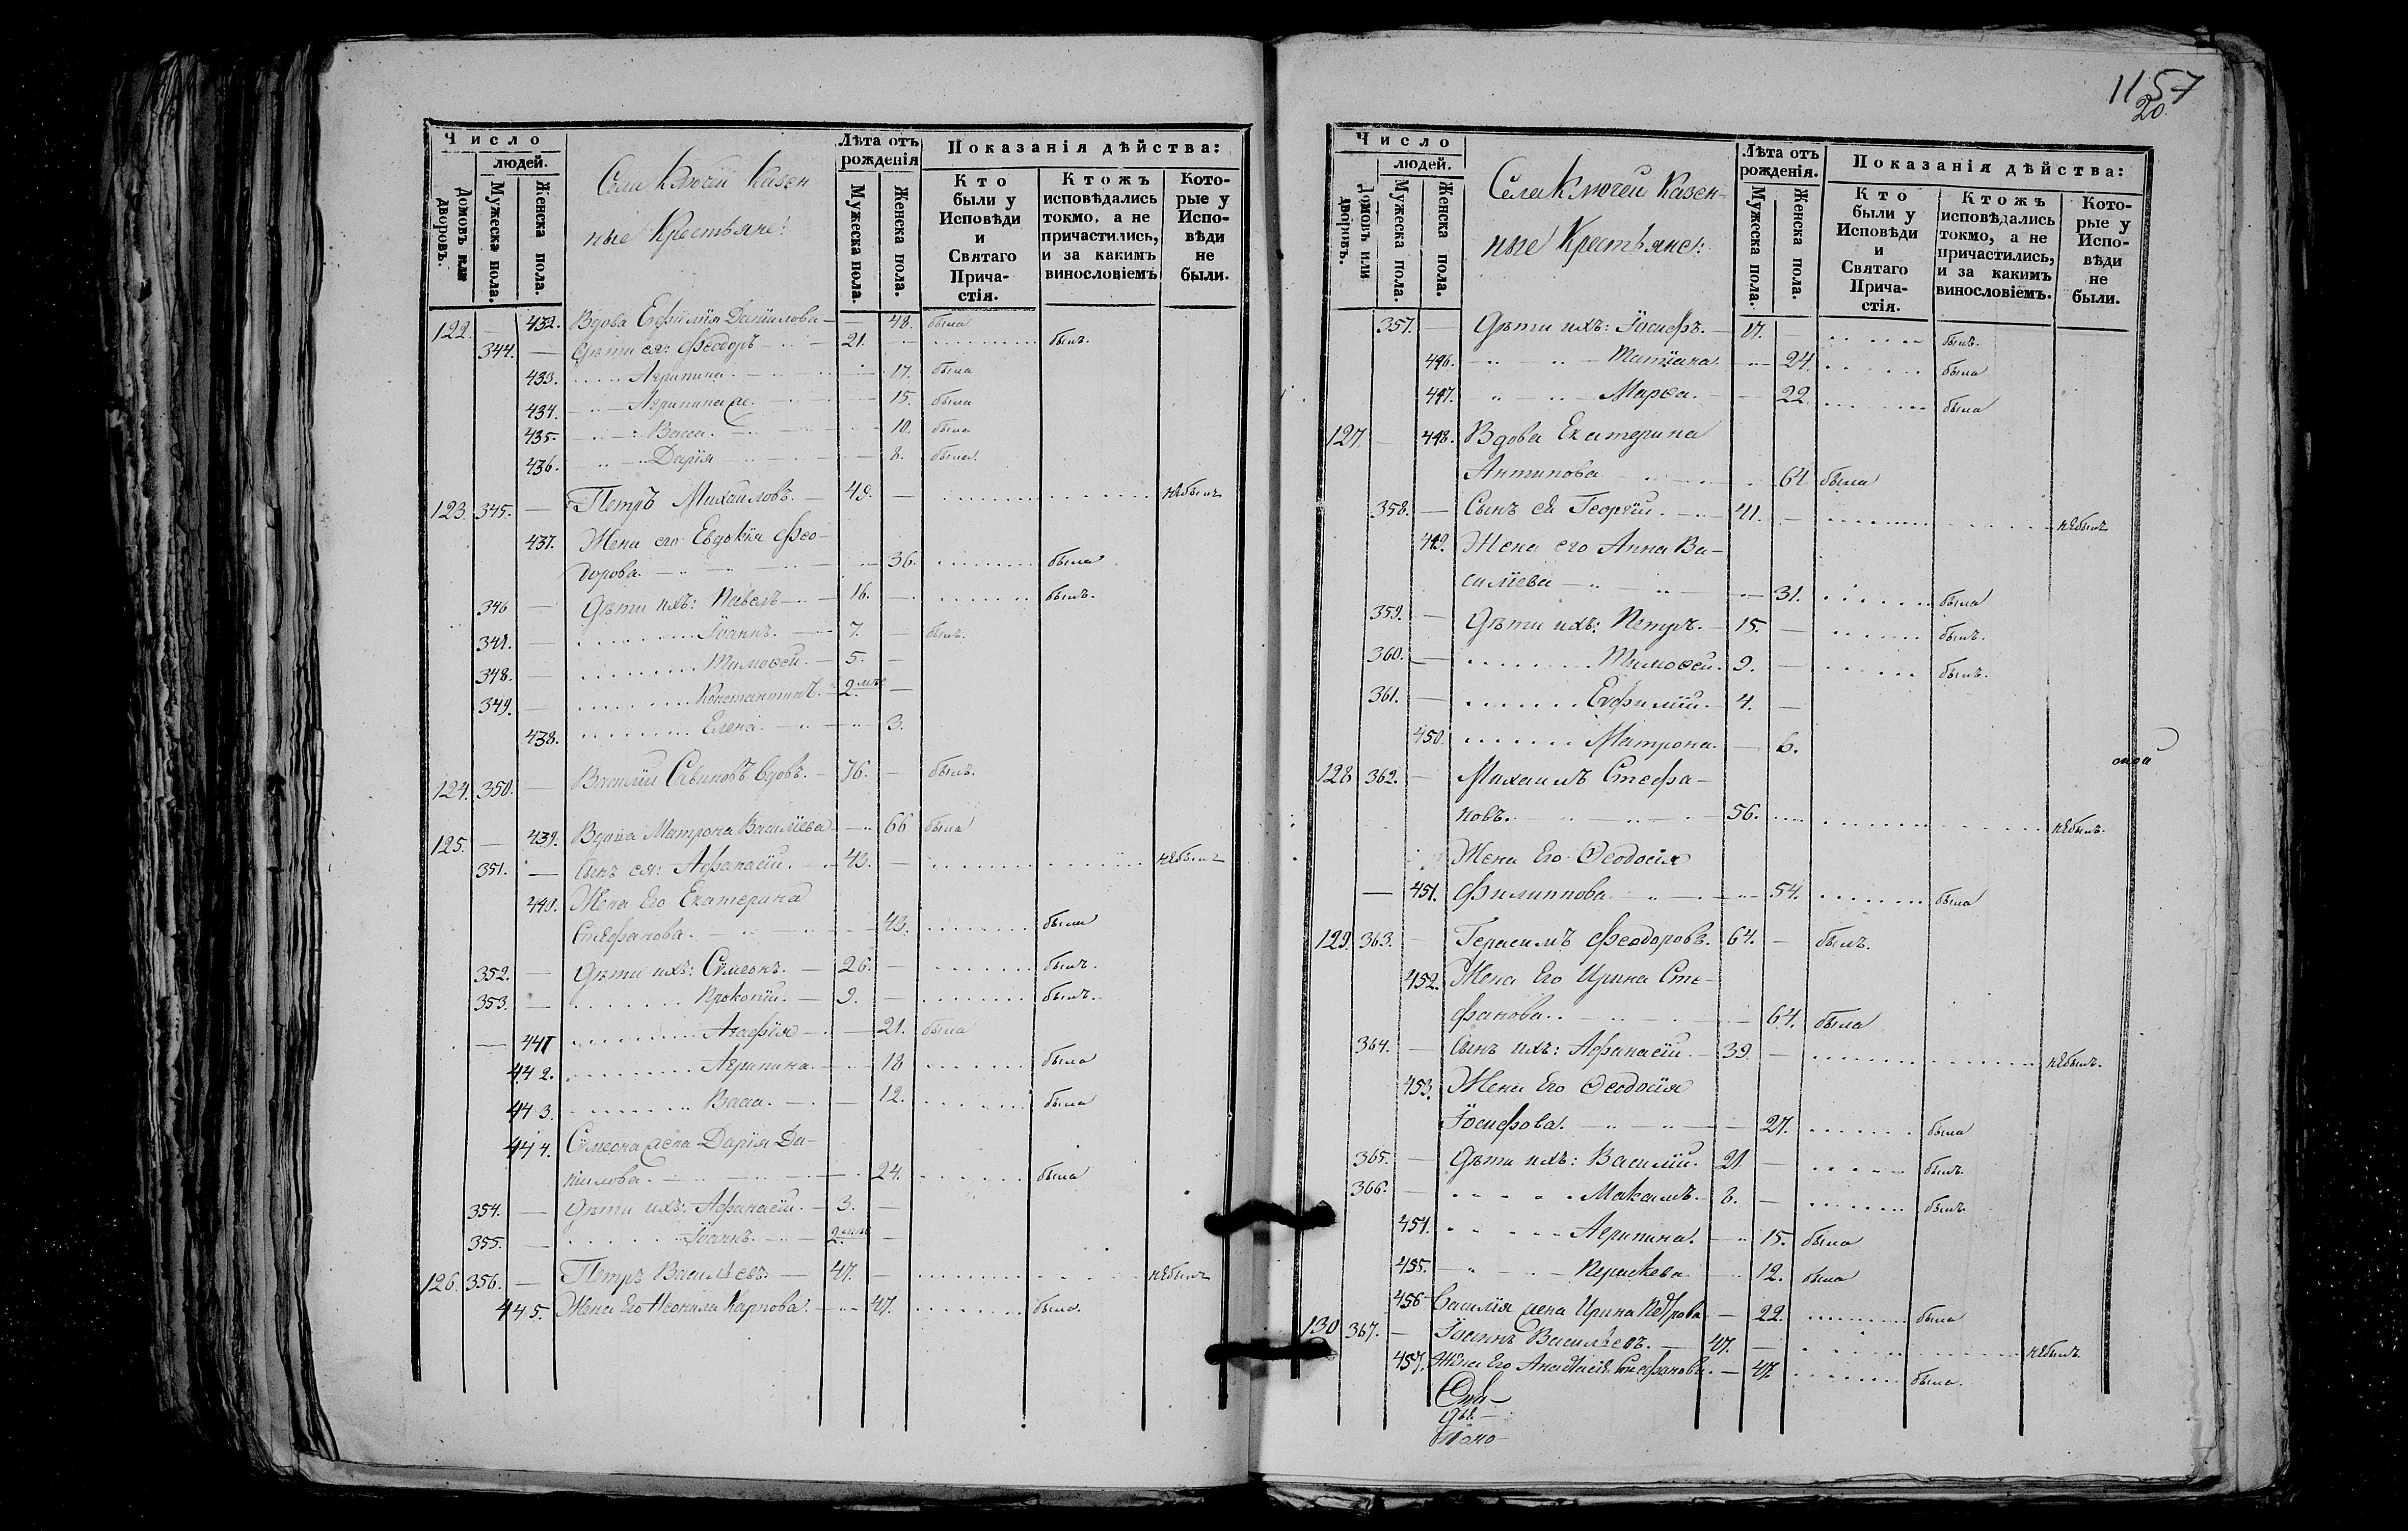 Число
людей.
Домовъ или дворовъ.
Мужеска пола.
Женска пола.
Села Ключей Казен-
ные Крестьяне:
Лѣта отъ рожденія
Мужеска пола.
Женска пола.
Показанія дѣйства:
Кто были у Исповѣди и Святаго Прича-стія.
Ктожъ исповѣдались токмо, а не причастились, и за какимъ винословіемъ
Кото-рые у Испо-вѣди не были.
122. — 432. Вдова Евфимія Данилова — 48. была
344. — Дѣти ея: Феодоръ — 21. — былъ.
433. Агрипина. — 17. была
434. Агрипина же. — 15. была
435. Васса. — 10. была
436. Дарія — 8. была.
123. 345. — Петръ Михаиловъ. — 49. — небылъ
437. Жена его Евдокія Фео-
дорова. — 36. была
346 — Дѣти ихъ: Павелъ — 16. — былъ.
347. — Іоаннъ. — 7. — былъ.
348. — Тимоѳей. — 5. —
349. — Константинъ. — 2 мѣс —
438. Елена. — 3.
124. 350. — Василій Савиновъ вдовъ. — 76. — былъ.
125. — 439. Вдова Матрона Василіева — 66 была
351. — Сынъ ея: Афанасій. — 43. — небылъ
440. Жена Его Екатерина
Стефанова. — 43. была
352. — Дѣти ихъ: Сѵмеонъ. — 26. — былъ.
353. — Прокопій. — 9. — былъ.
— 441 Агафія — 21. была
442. Агрипина. — 18 была
443. Васса. — 12. была
444. Сѵмеона жена Дарія Да-
нилова. — 24. была
354. — Дѣти ихъ: Афанасій. — 3. —
355. — Іоаннъ. — 2 мѣс —
126. 356. — Петръ Васильевъ. — 47. — небылъ
445. Жена Его Неонила Карпова. — 47. была.
1157
20.
Число
людей.
Домовъ или дворовъ.
Мужеска пола.
Женска пола.
Села Ключей Казен-
ные Крестьяне:
Лѣта отъ рожденія.
Мужеска пола.
Женска пола.
Показанія дѣйства:
Кто были у Исповѣди и Святаго Прича-стія.
Ктожъ исповѣдались токмо, а не причастились, и за какимъ винословіемъ.
Кото-рые у Испо-вѣди не были.
357. — Дѣти ихъ: Іосифъ. — 17. — былъ.
446. Татіана. — 24. была
447. Марѳа. — 22. была
127. — 448. Вдова Екатерина
Антипова — 64 была
358. — Сынъ ея Георгій. — 41. — небылъ
449. Жена его Анна Ва-
силіева — 31. была
359. — Дѣти ихъ: Петръ. — 15. — былъ.
360. — Тимоѳей. — 9. — былъ.
361. — Евфимій. — 4. —
450. Матрона. — 6.
128 362. — Михаилъ Стефа-
новъ. — 56. небылъ.
Жена Его Ѳеодосія
— 451. Филиппова — 54. была
129. 363. — Герасимъ Феодоровъ. 64. — былъ.
452. Жена Его Ирина Сте-
фанова. — 64. была
364. — Сынъ ихъ: Афанасій. — 39. — небылъ.
453. Жена Его Ѳеодосія
Іосифова. — 27. была
365. — Дѣти ихъ: Василій. 21 — былъ
366. — Максимъ. — 8. — былъ
454. Агрипина. — 15. была
455. Параскева. — 12. была
456 Василія жена Ирина Петрова — 22. была
130 367. — Іоаннъ Васильевъ. — 47. — небылъ
457. Жена Его Анастасія Стефанова. — 47 была.